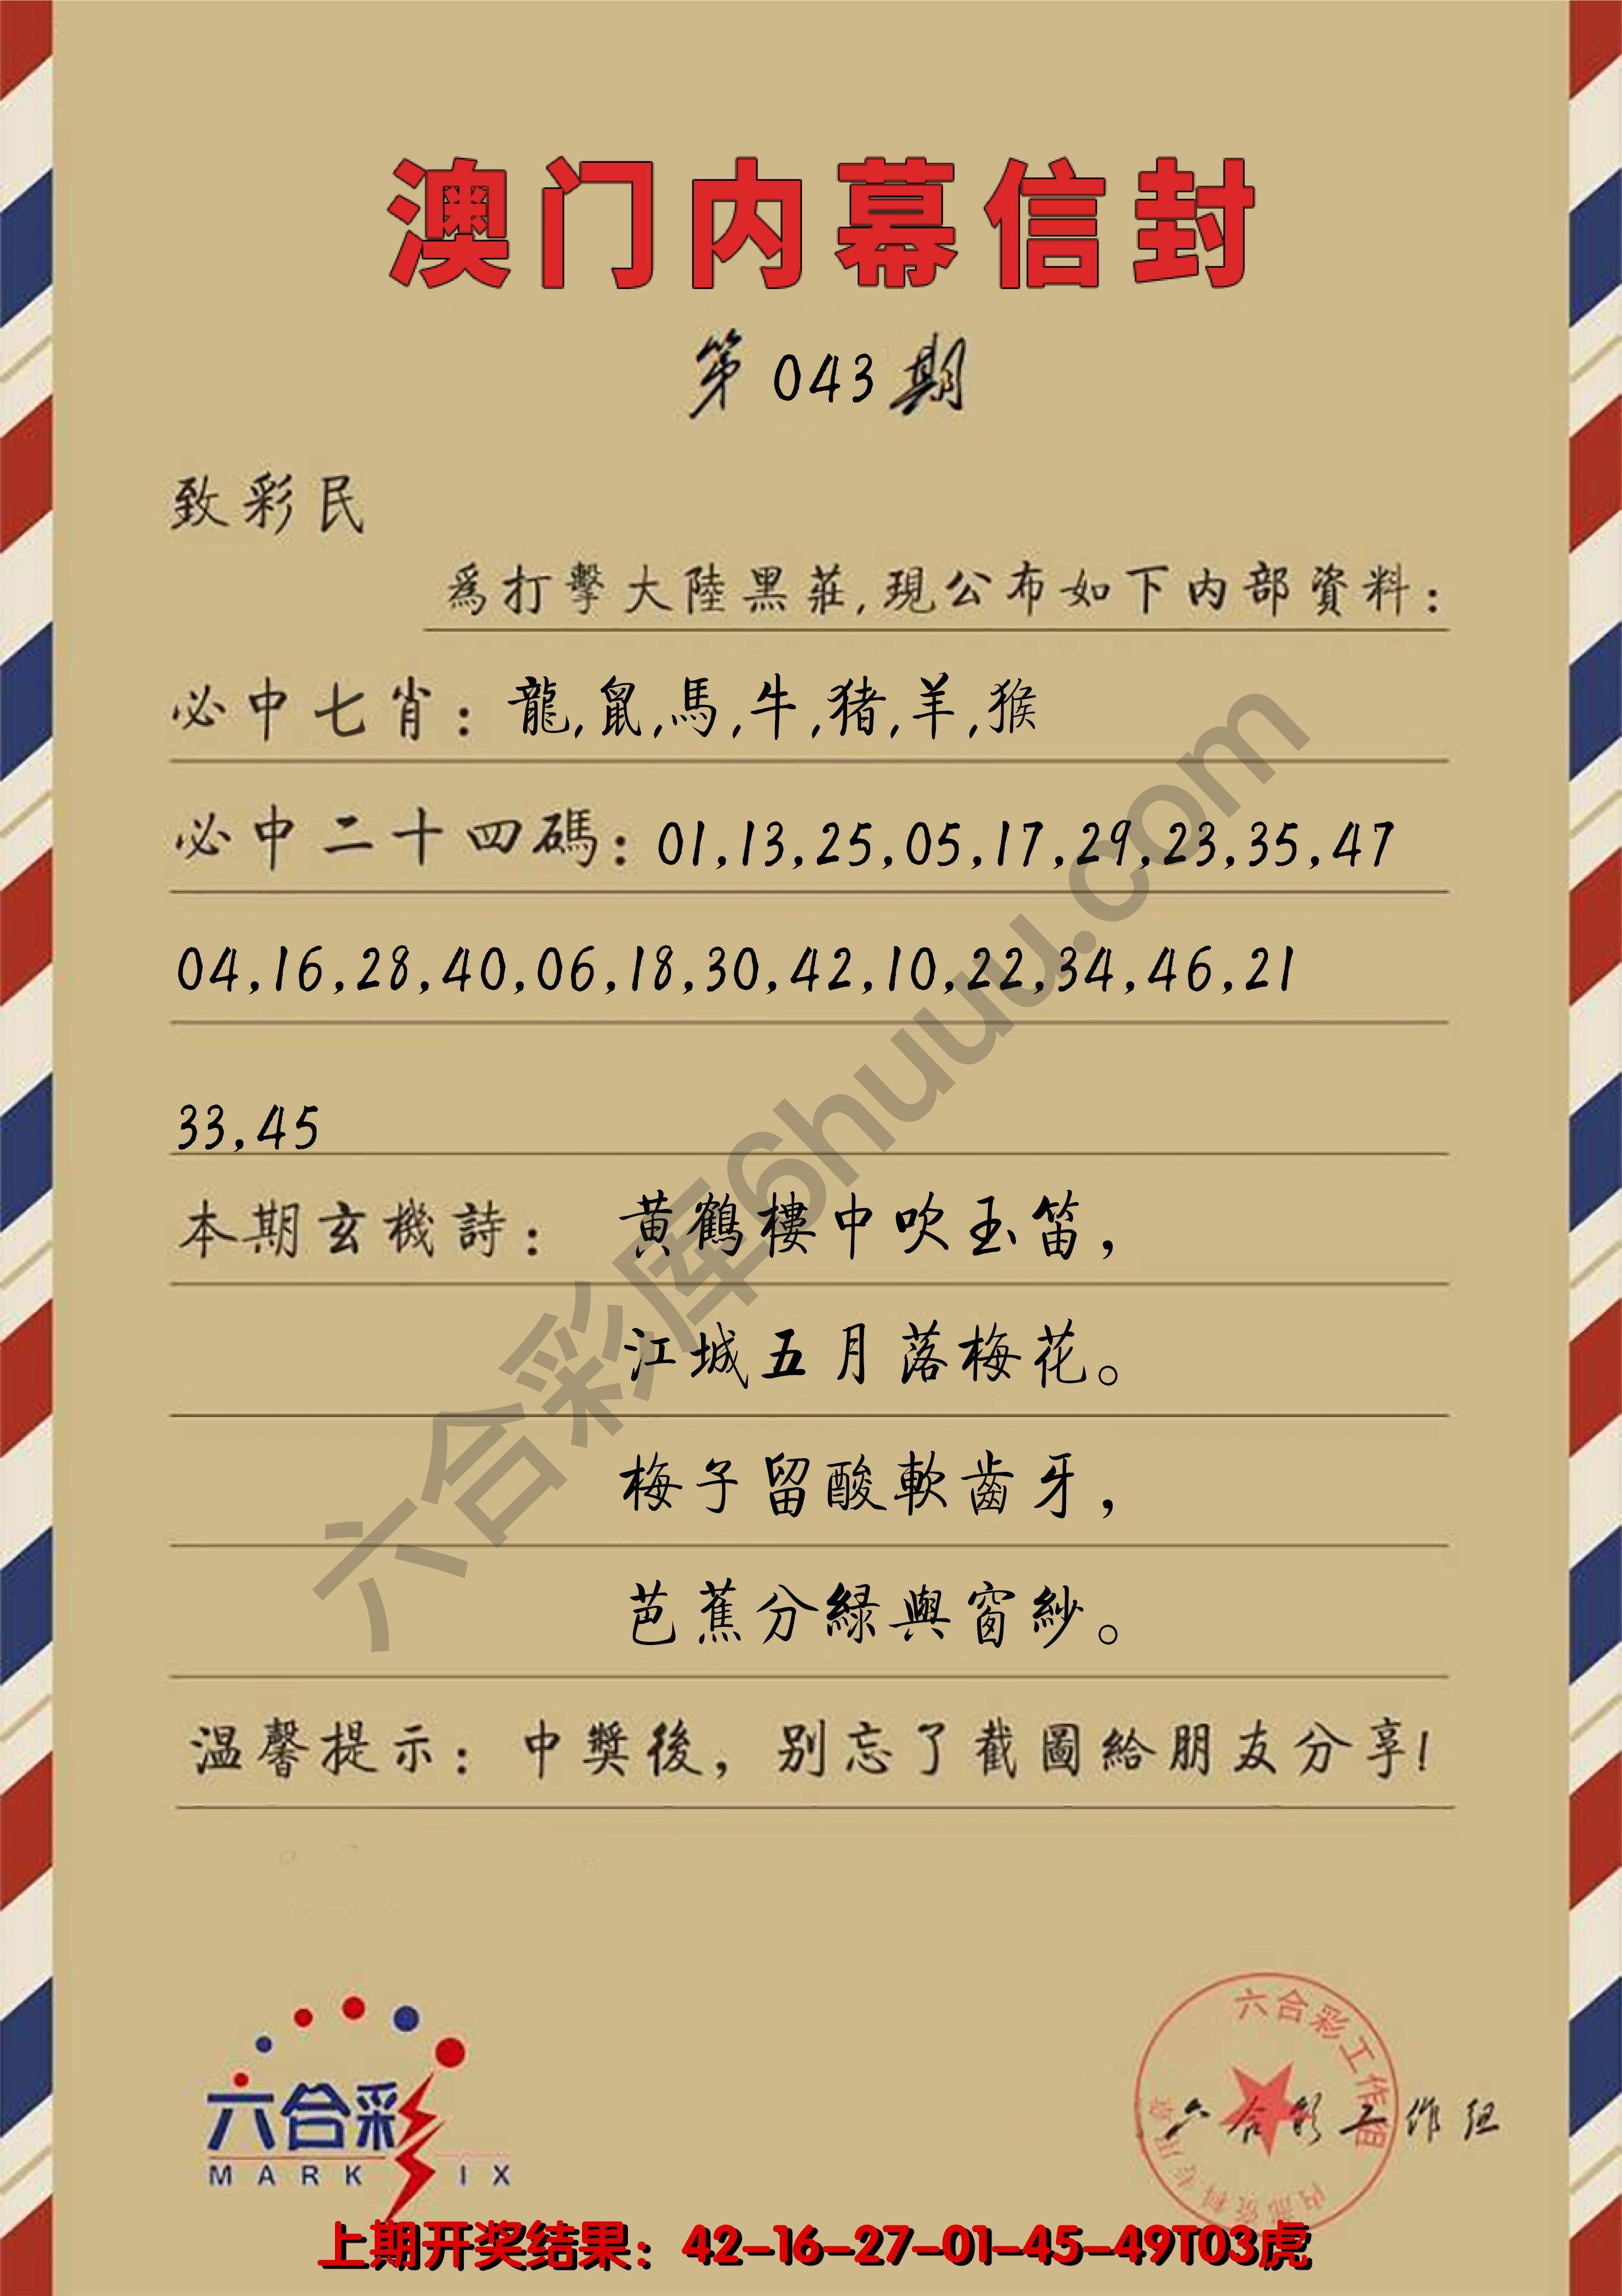 澳门内幕信封
第043期
致彩民
爲打擊大陸黑莊,現公布如下内部資料:
必中七肖:龍,鼠,馬,牛,猪,羊,猴
必中二十四碼:01,13,25,05,17,29,23,35,47
04,16,28,40,06,18,30,42,10,22,34,46,21
33,45
本期玄機詩: 黄鶴樓中吹玉笛,
江城五月落梅花。
梅子留酸軟齒牙,
芭蕉分緑與窗紗。
温馨提示:中獎後,别忘了截圖給朋友分享!
六合彩库6huuu.com
六合彩
MARK IX
六合彩工作组
六合彩工作组
内部资料专用章
上期开奖结果:42-16-27-01-45-49T03虎